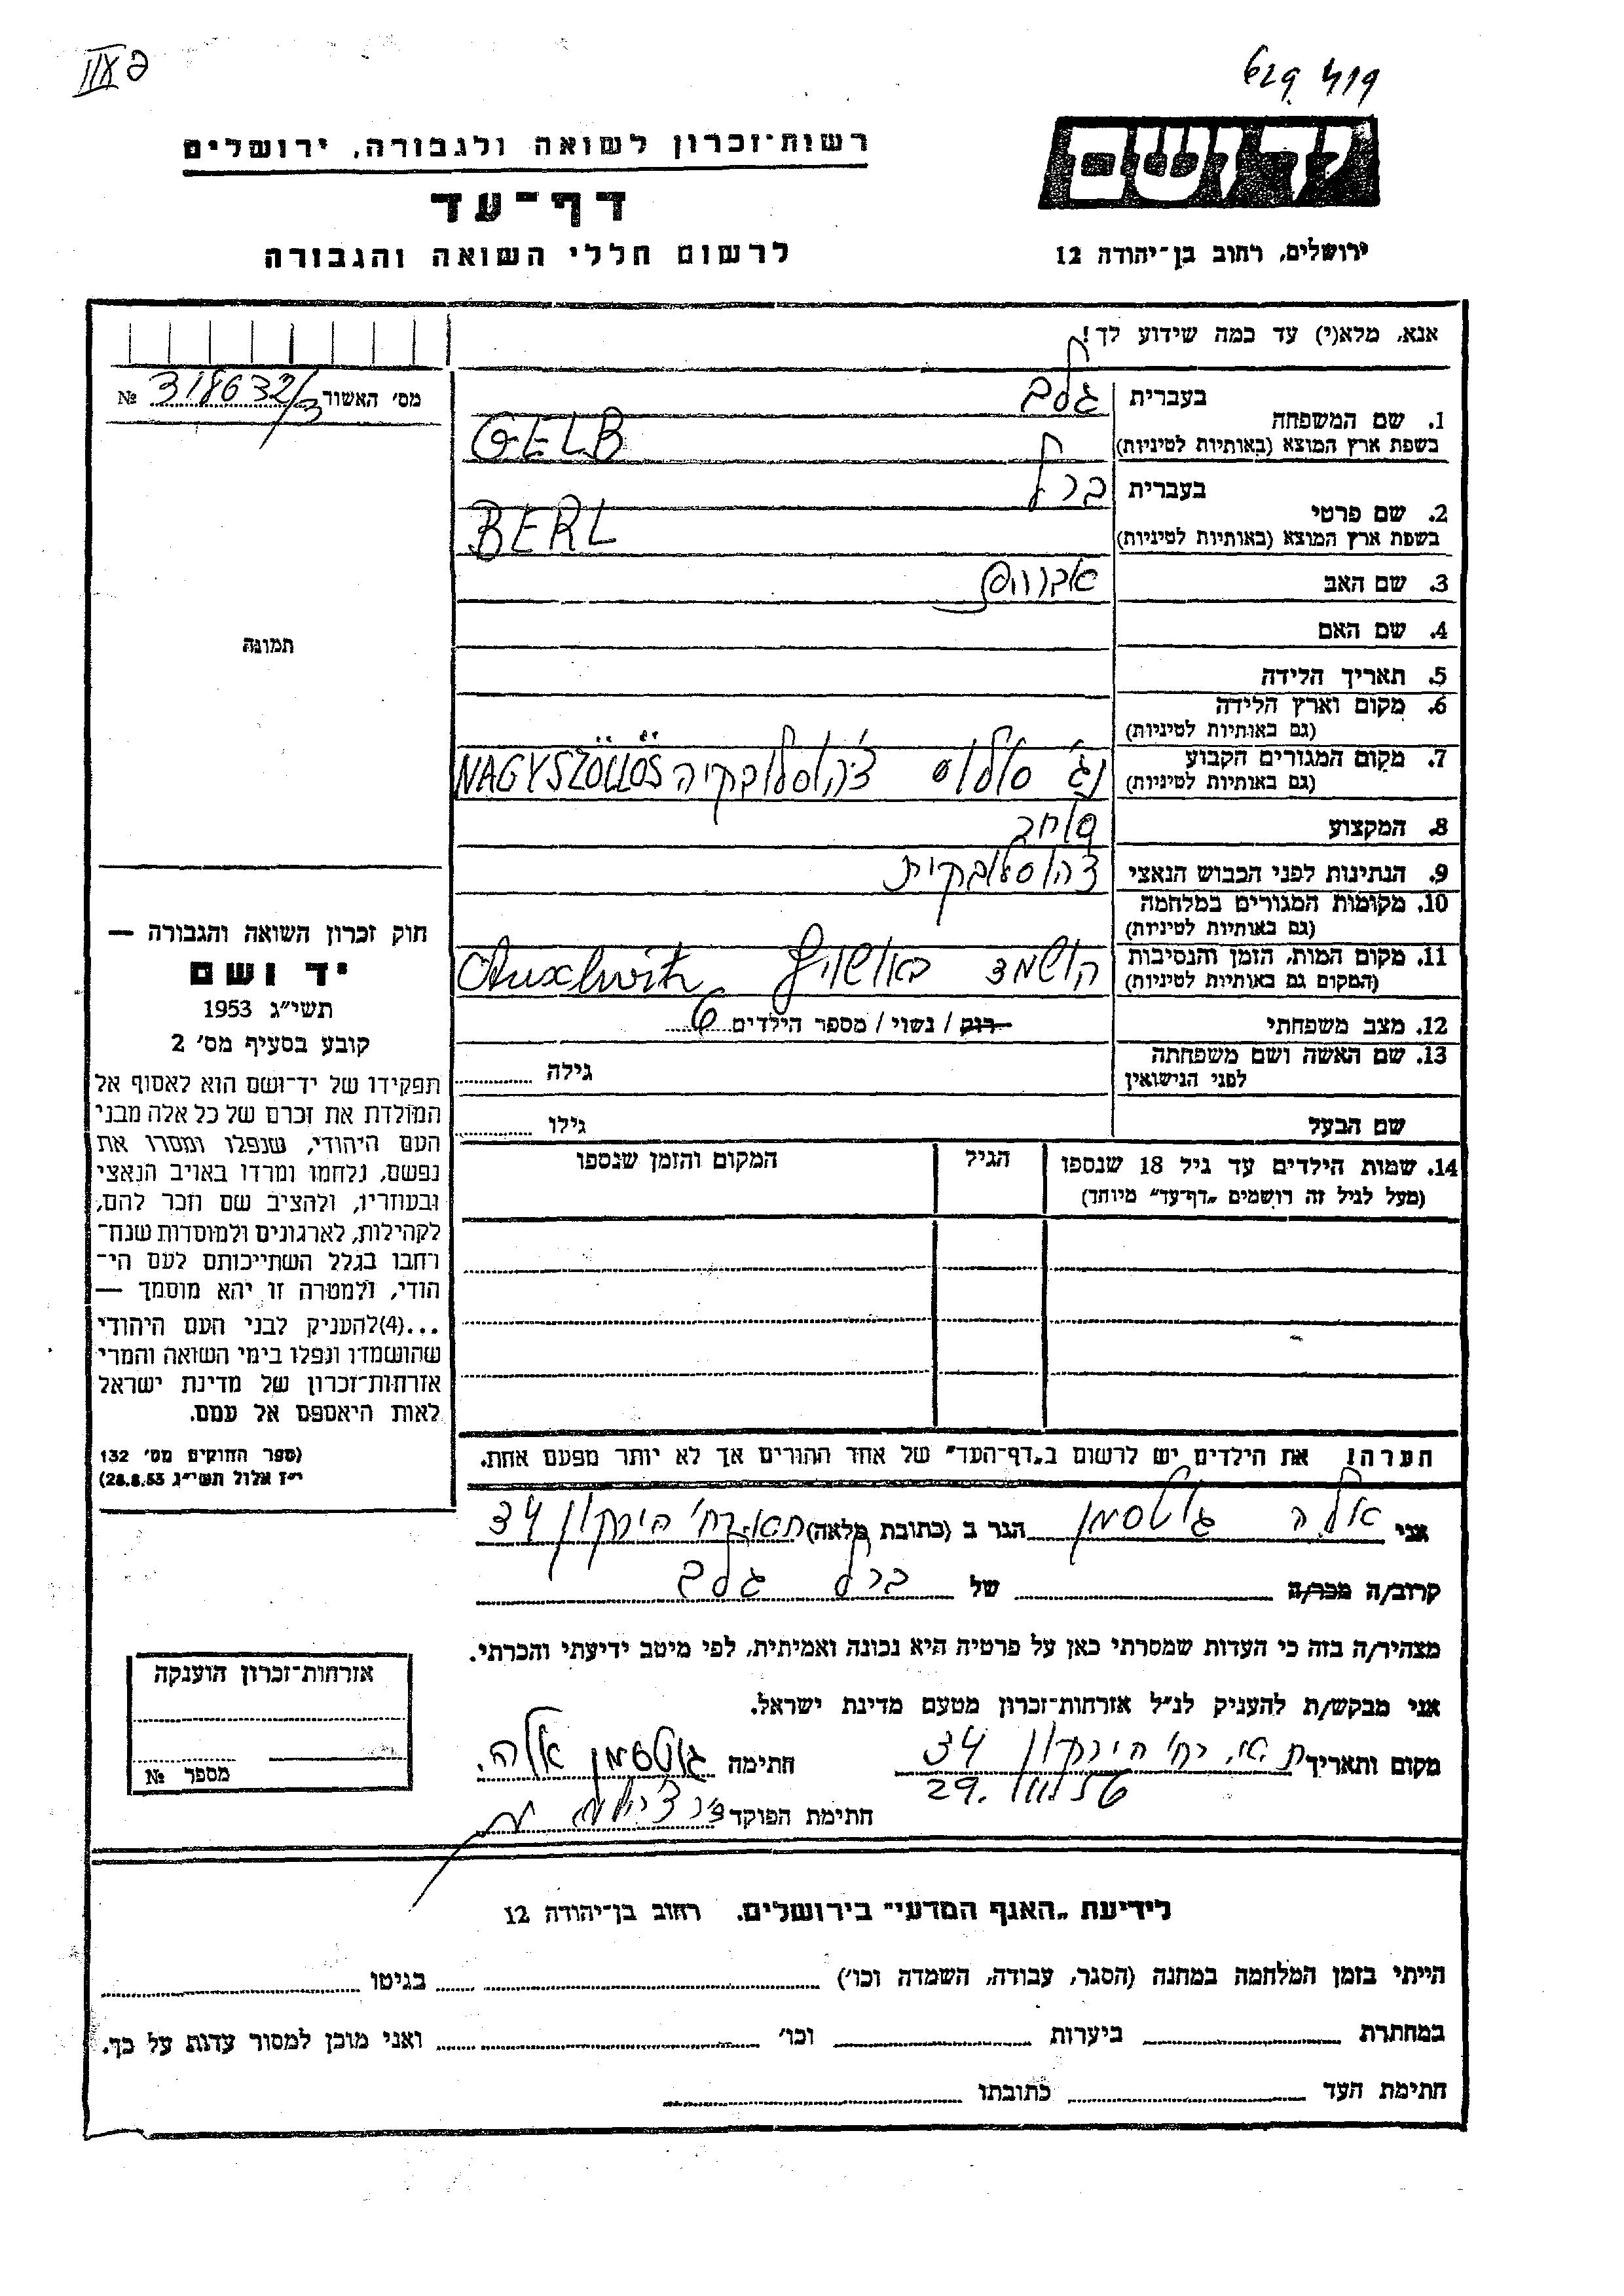 רשות־זכרון לשואה ולגבורה, ירושלים
דף־עד
לרשום חללי השואה והגבורה
יד ושם
ירושלים, רחוב בן־יהודה 12
אנא, מלא(י) עד כמה שידוע לך!
מס׳ האשור 318632/3 №
תמונה
1. שם המשפחה
בעברית גלב
בשפת ארץ המוצא (באותיות לטיניות) GELB
2. שם פרטי
בעברית ברל
בשפת ארץ המוצא (באותיות לטיניות) BERL
3. שם האב אברהם
4. שם האם
5. תאריך הלידה
6. מקום וארץ הלידה
(גם באותיות לטיניות)
7. מקום המגורים הקבוע נג׳ סלוש צ׳כוסלובקיה NAGYSZÖLLÖS
(גם באותיות לטיניות)
8. המקצוע סוחר
9. הנתינות לפני הכבוש הנאצי צ׳כוסלובקית
10. מקומות המגורים במלחמה
(גם באותיות לטיניות)
11. מקום המות, הזמן והנסיבות הושמד באושויץ Auschwitz
(המקום גם באותיות לטיניות)
12. מצב משפחתי רוק / נשוי / מספר הילדים 6
13. שם האשה ושם משפחתה
לפני הנישואין גילה
שם הבעל גילו
14. שמות הילדים עד גיל 18 שנספו הגיל המקום והזמן שנספו
(מעל לגיל זה רושמים „דף־עד״ מיוחד)
הערה! את הילדים יש לרשום ב„דף־העד״ של אחד ההורים אך לא יותר מפעם אחת.
חוק זכרון השואה והגבורה —
יד ושם
תשי״ג 1953
קובע בסעיף מס׳ 2
תפקידו של יד־ושם הוא לאסוף אל
המולדת את זכרם של כל אלה מבני
העם היהודי, שנפלו ומסרו את
נפשם, נלחמו ומרדו באויב הנאצי
ובעוזריו, ולהציב שם וזכר להם,
לקהילות, לארגונים ולמוסדות שנח־
רחבו בגלל השתייכותם לעם הי־
הודי, ולמטרה זו יהא מוסמך —
...(4)להעניק לבני העם היהודי
שהושמדו ונפלו בימי השואה והמרי
אזרחות־זכרון של מדינת ישראל
לאות היאספם אל עמם.
(ספר החוקים מס׳ 132
י״ז אלול תשי״ג 28.8.53)
אני אלה גוטסמן הגר ב (כתובת מלאה) ת״א רח׳ הירקון 34
קרוב/ה מכר/ה של ברל גלב
מצהיר/ה בזה כי העדות שמסרתי כאן על פרטיה היא נכונה ואמיתית, לפי מיטב ידיעתי והכרתי.
אני מבקש/ת להעניק לנ״ל אזרחות־זכרון מטעם מדינת ישראל.
מקום ותאריך ת.א. רח׳ הירקון 34 חתימה גוטסמן אלה.
29.
חתימת הפוקד
אזרחות־זכרון הוענקה
מספר №
לידיעת „האגף המדעי״ בירושלים. רחוב בן־יהודה 12
הייתי בזמן המלחמה במחנה (הסגר, עבודה, השמדה וכו׳) בגיטו
במחתרת ביערות וכו׳ ואני מוכן למסור עדות על כך.
חתימת העד כתובתו